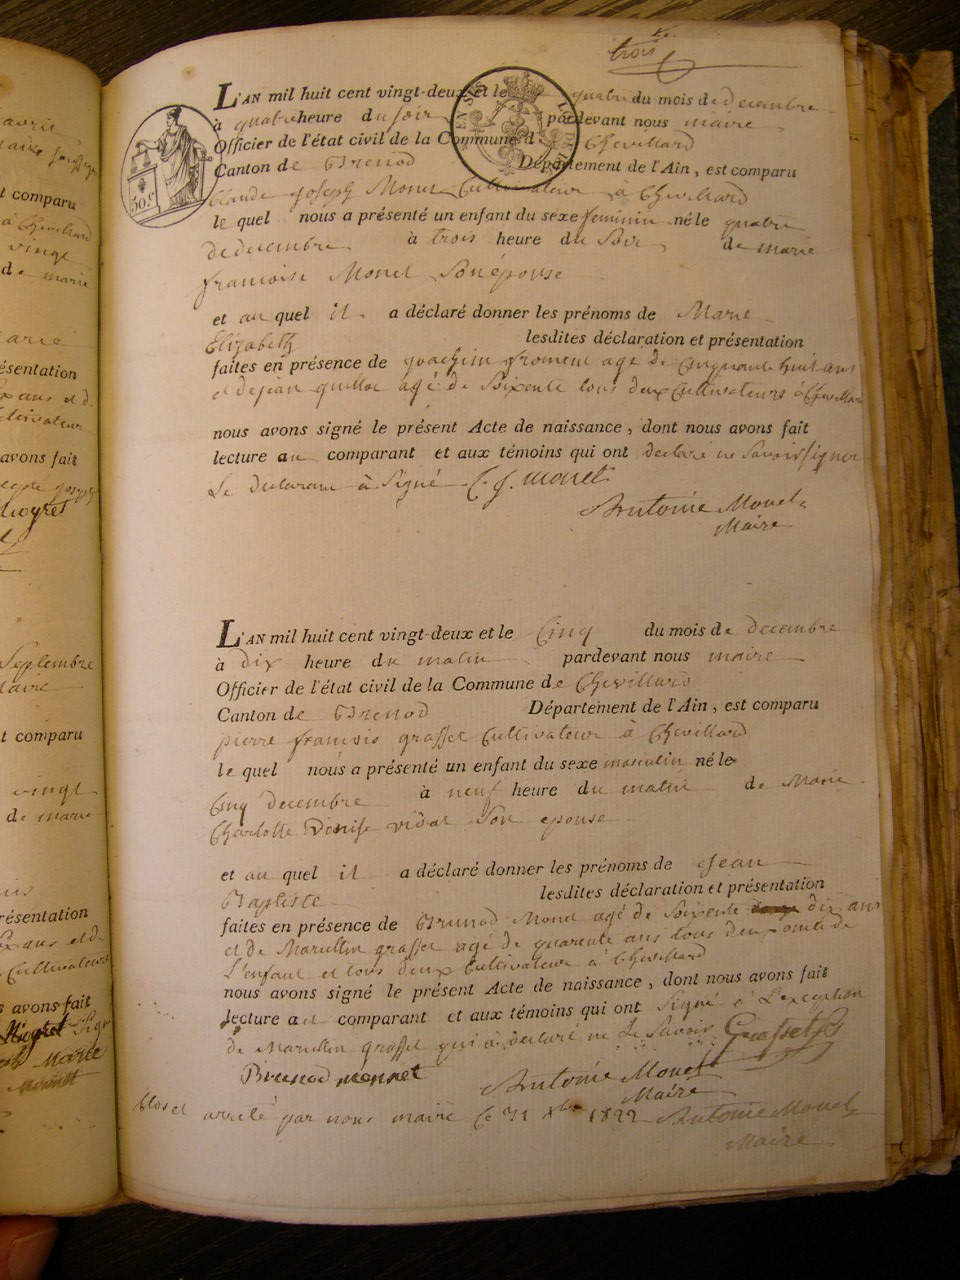 trois
L'AN mil huit cent vingt-deux et le quatre du mois de decembre
à quatre heure du soir pardevant nous maire
Officier de l'état civil de la Commune d Chevillard
Canton de Brenod Département de l'Ain, est comparu
Claude joseph Monet Cultivateur à Chevillard
le quel nous a présenté un enfant du sexe feminin né le quatre
de decembre à trois heure du Soir de marie
francoise Monet Son épouse
et au quel il a déclaré donner les prénoms de Marie
Elizabeth lesdites déclaration et présentation
faites en présence de joachim froment age de Cinquante huit ans
et de jean guilloc agé de Soixente tous deux Cultivateurs à Chevillard
nous avons signé le présent Acte de naissance, dont nous avons fait
lecture au comparant et aux témoins qui ont declaré ne Savoir signer
Le declarant à Signé C. J. monet
Antoine Monet
Maire
L'AN mil huit cent vingt-deux et le Cinq du mois de decembre
à dix heure du matin pardevant nous maire
Officier de l'état civil de la Commune de Chevillard
Canton de Brenod Département de l'Ain, est comparu
pierre francois grasset Cultivateur à Chevillard
le quel nous a présenté un enfant du sexe masculin né le
Cinq decembre à neuf heure du matin de Marie
Charlotte Denise vidal Son epouse
et au quel il a déclaré donner les prénoms de Jean
Baptiste lesdites déclaration et présentation
faites en présence de Brunod Monet agé de Soixente dix ans
et de Marullin grasset agé de quarente ans tous deux de
L'enfant et tous deux Cultivateur à Chevillard
nous avons signé le présent Acte de naissance, dont nous avons fait
lecture au comparant et aux témoins qui ont Signé à L'exception
de Marullin grasset qui à declaré ne Le Savoir Grasset
Brunod monnet Antoine Monet
Maire
Clos et arrêté par nous maire Ce 31 Xbre 1822 Antoine Monet
Maire